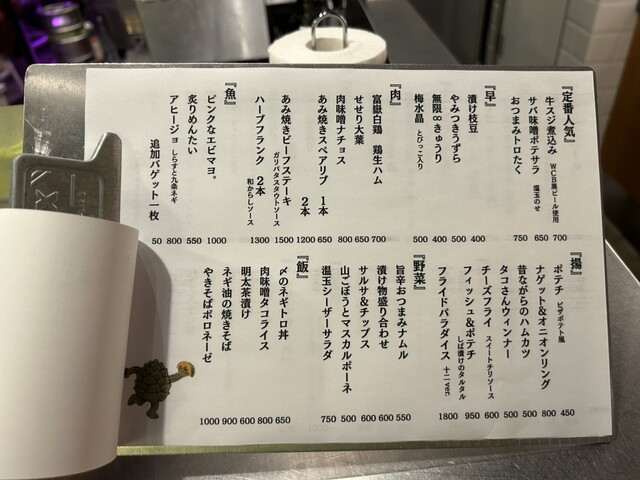 『定番人気』
牛スジ煮込み WCB黒ビール使用 700
サバ味噌ポテサラ 温玉のせ 650
おつまみトロたく 750
『早』
漬け枝豆 400
やみつきうずら 500
無限∞きゅうり 400
梅水晶 とびっこ入り 500
『肉』
富嶽白鶏 鶏生ハム 700
せせり大葉 650
肉味噌ナチョス 800
あみ焼きスペアリブ 1本 650
2本 1200
あみ焼きビーフステーキ ガリバタスタウトソース 1500
ハーブフランク 2本 和からしソース 1300
『魚』
ピンクなエビマヨ。 1000
炙りめんたい 550
アヒージョ しらすと九条ネギ 800
追加バゲット一枚 50
『揚』
ポテチ ピザポテト風 450
ナゲット&オニオンリング 800
昔ながらのハムカツ 500
タコさんウィンナー 500
チーズフライ スイートチリソース 600
フィッシュ&ポテチ しば漬けのタルタル 950
フライドパラダイス 十二ver. 1800
『野菜』
旨辛おつまみナムル 550
漬け物盛り合わせ 600
サルサ&チップス 600
山ごぼうとマスカルポーネ 500
温玉シーザーサラダ 750
『飯』
〆のネギトロ丼 650
肉味噌タコライス 800
明太茶漬け 600
ネギ油の焼きそば 900
やきそばボロネーゼ 1000